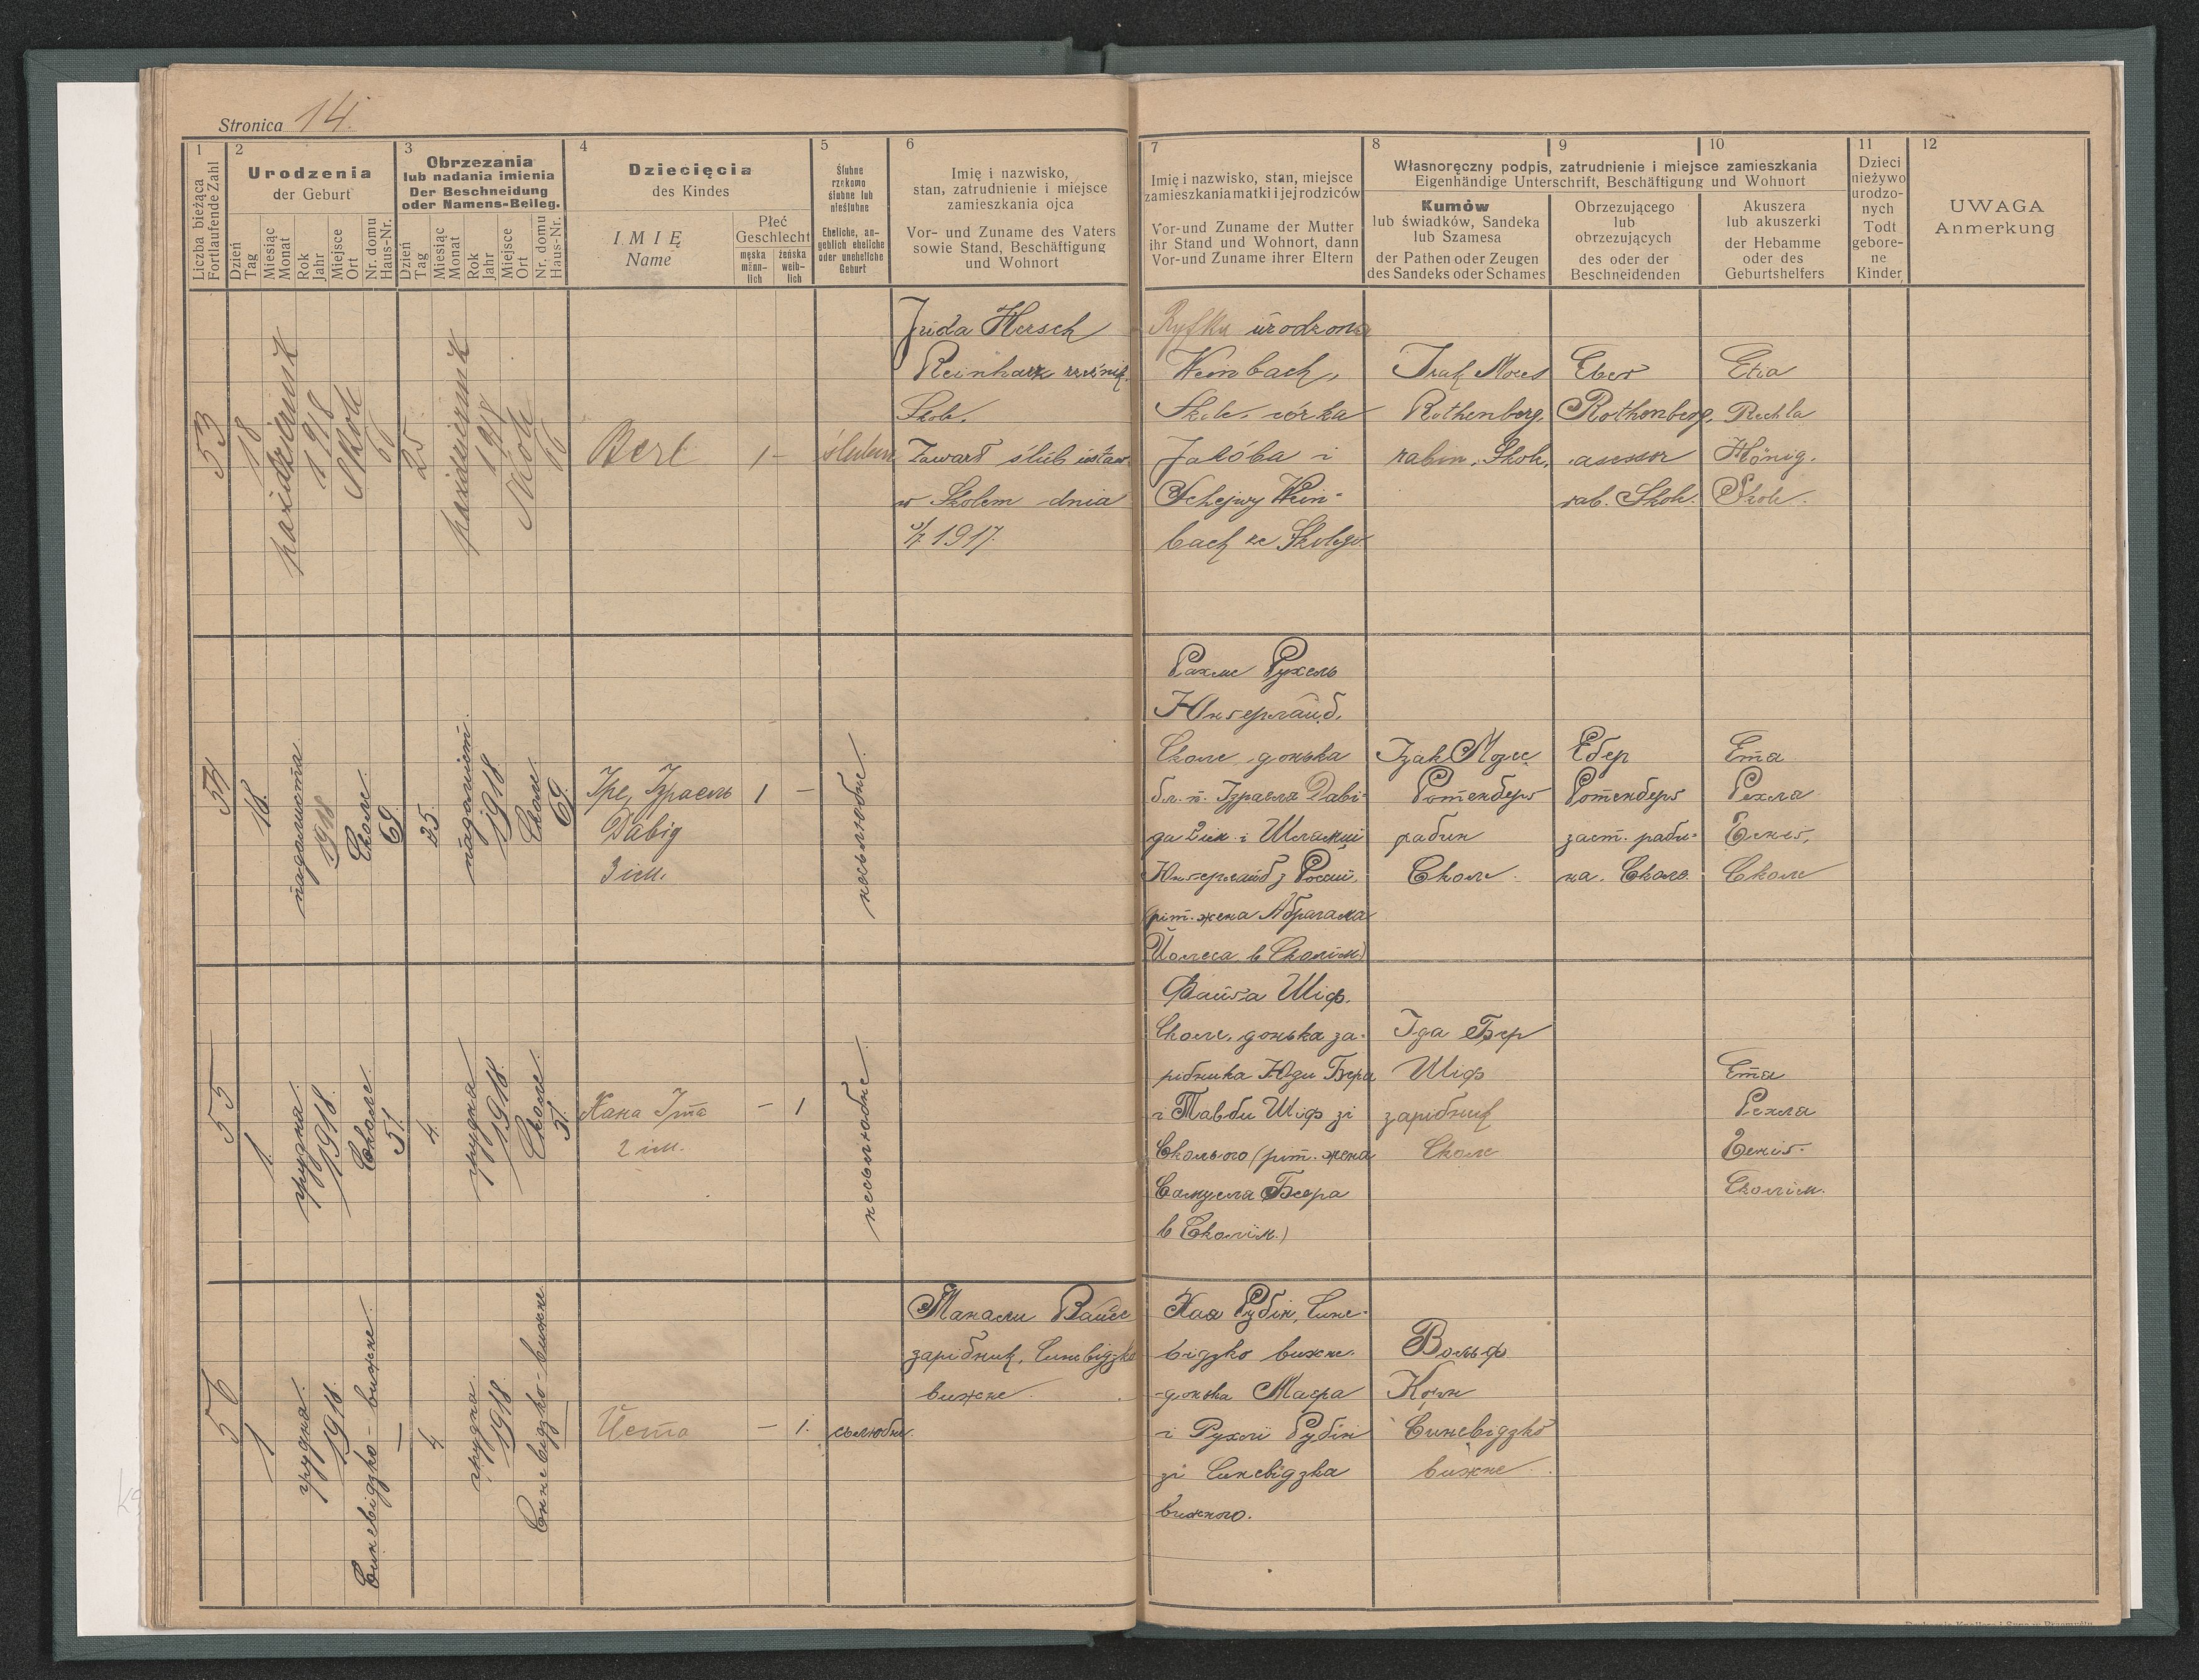 Stronica 14.
1
2
3
4
5
6
7
8
9
10
11
12
Liczba bieżąca
Fortlaufende Zahl
Urodzenia
der Geburt
Dzień
Tag
Miesiąc
Monat
Rok
Jahr
Miejsce
Ort
Nr. domu
Haus-Nr.
Obrzezania
lub nadania imienia
Der Beschneidung
oder Namens-Beileg.
Dzień
Tag
Miesiąc
Monat
Rok
Jahr
Miejsce
Ort
Nr. domu
Haus-Nr.
Dziecięcia
des Kindes
IMIĘ
Name
Płeć
Geschlecht
męska
männ-
lich
żeńska
weib-
lich
Ślubne
rzekomo
ślubne lub
nieślubne
Eheliche, an-
geblich eheliche
oder uneheliche
Geburt
Imię i nazwisko,
stan, zatrudnienie i miejsce
zamieszkania ojca
Vor- und Zuname des Vaters
sowie Stand, Beschäftigung
und Wohnort
Imię i nazwisko, stan, miejsce
zamieszkania matki i jej rodziców
Vor-und Zuname der Mutter
ihr Stand und Wohnort, dann
Vor-und Zuname ihrer Eltern
Własnoręczny podpis, zatrudnienie i miejsce zamieszkania
Eigenhändige Unterschrift, Beschäftigung und Wohnort
Kumów
lub świadków, Sandeka
lub Szamesa
der Pathen oder Zeugen
des Sandeks oder Schames
Obrzezującego
lub
obrzezujących
des oder der
Beschneidenden
Akuszera
lub akuszerki
der Hebamme
oder des
Geburtshelfers
Dzieci
nieżywo
urodzo-
nych
Todt
gebore-
ne
Kinder
UWAGA
Anmerkung
53
18
październik
1918
Skole
66
25
październik
1918
Skole
66
Berl
1 -
ślubne
Juda Hersch
Reinharz rzeźnik
Skole.
Zawarł ślub
w Skolem dnia
1917.
Ryfka urodzona
Weinbach,
Skole, córka
Jakóba i
Schejwy Wein-
bach ze Skolego
Izak Moses
Rothenberg,
rabin, Skole,
Eber
Rothenberg,
asessor
rab. Skole.
Etia
Rechla
Hönig.
Skole.
54
18.
падолиста
1918
Сколе.
69.
25.
падолист.
1918
Сколе
69.
Іре, Ізраель
Давід
3 ім.
1 -
несьлюбне.
Рахме Рухель
Юнгерлайд,
Сколе, донька
бл. п. Ізраеля Даві-
да
Юнгерлайд з Росії,
рит. жена Абрагама
Йолеса в Сколім)
Ізак Мозес
Ротенберг
рабин
Сколе.
Ебер
Ротенберг
заст. раби-
на. Сколе.
Ета
Рехля
Геніг,
Сколе
55
1
грудня.
1918.
Сколе.
51.
4.
грудня
1918.
Сколе.
51.
Хана Іта
2 ім.
- 1
несьлюбне.
Файга Шіф.
Сколе, донька за-
рібника Юди Бера
і Тавби Шіф зі
Сколього (рит. жена
Самуела Беера
в Сколім.)
Іда Бер
Шіф
зарібник
Сколе
Ета
Рехля
Геніг.
Сколім.
56
1
грудня.
1918.
Синевідзко-вижне.
—
4.
грудня.
1918.
Синевідзко-вижне
—
Йета
- 1.
сьлюбне.
Манали Вайс
зарібник, Синевідзко
вижне.
Хая Рубін, Сине-
відзко вижне.
-донька Маера
і Рухлі Рубін
зі Синевідзка
вижного.
Вольф
Корн
Синевідзко
вижне.